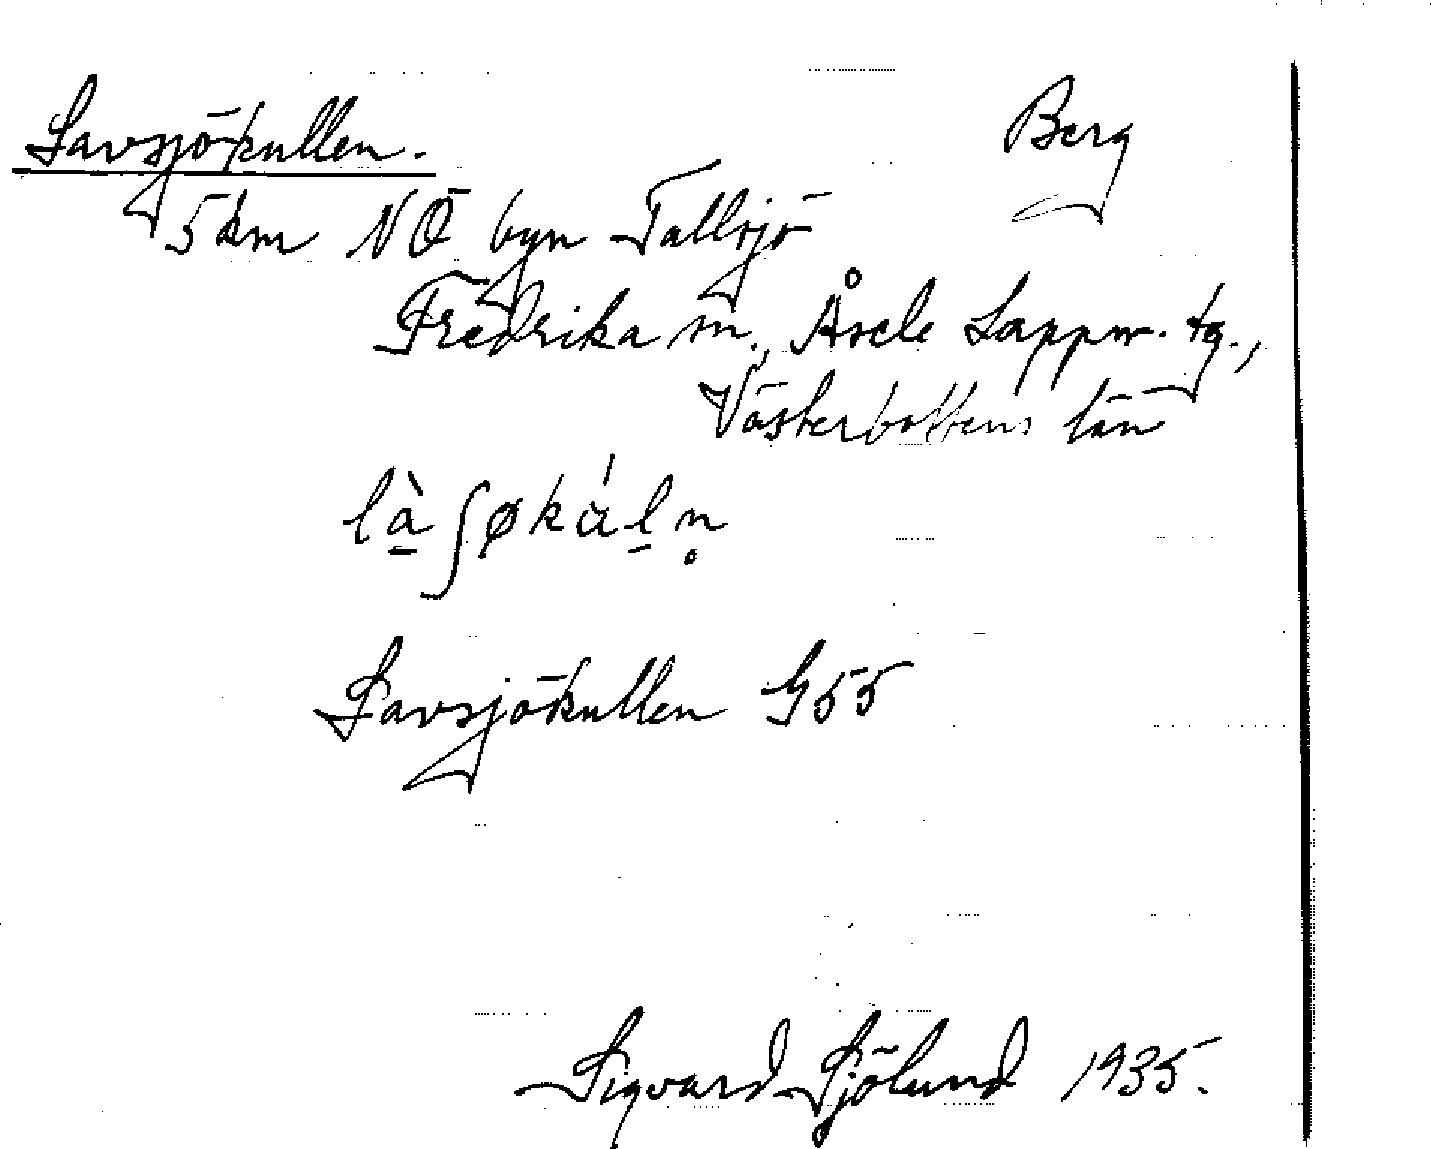 Lavsjökullen. Berg
5 km NÖ byn Tallsjö
Fredrika sn., Åsele Lappm. tg.,
Västerbottens län
là̱ʃøká̇ḻn̥
Lavsjökullen G55
Sigvard Sjölund 1935.